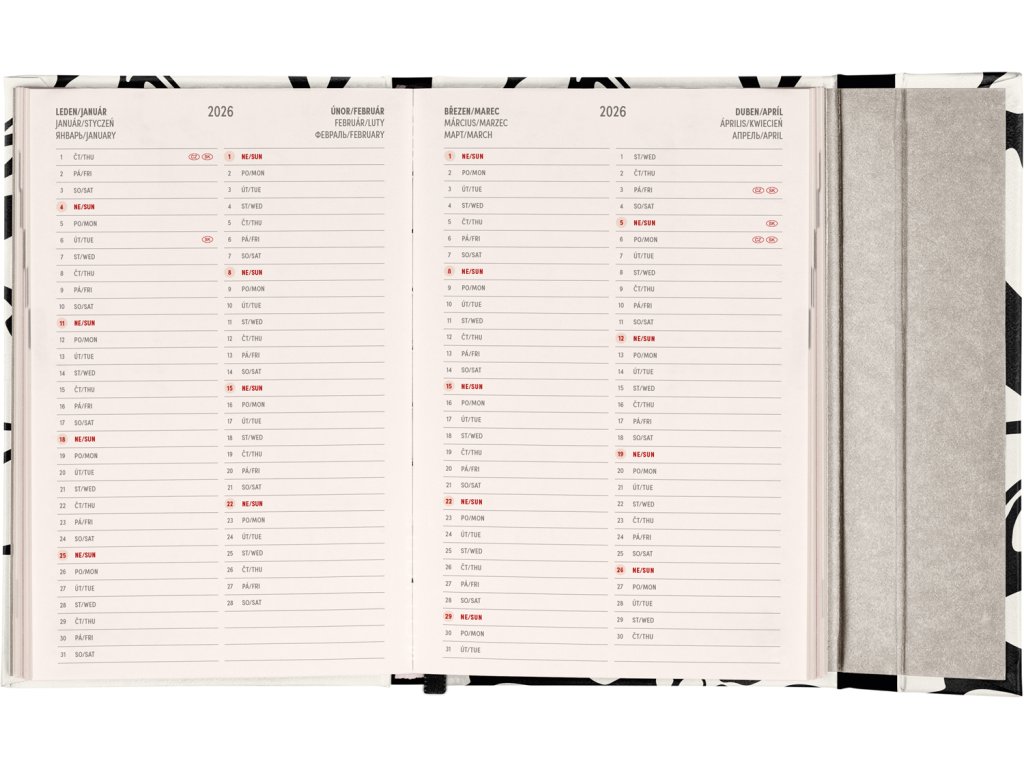 LEDEN/JANUÁR
JANUÁR/STYCZEŃ
ЯНВАРЬ/JANUARY
2026
ÚNOR/FEBRUÁR
FEBRUÁR/LUTY
ФЕВРАЛЬ/FEBRUARY
1 ČT/THU CZ SK
2 PÁ/FRI
3 SO/SAT
4 NE/SUN
5 PO/MON
6 ÚT/TUE SK
7 ST/WED
8 ČT/THU
9 PÁ/FRI
10 SO/SAT
11 NE/SUN
12 PO/MON
13 ÚT/TUE
14 ST/WED
15 ČT/THU
16 PÁ/FRI
17 SO/SAT
18 NE/SUN
19 PO/MON
20 ÚT/TUE
21 ST/WED
22 ČT/THU
23 PÁ/FRI
24 SO/SAT
25 NE/SUN
26 PO/MON
27 ÚT/TUE
28 ST/WED
29 ČT/THU
30 PÁ/FRI
31 SO/SAT
1 NE/SUN
2 PO/MON
3 ÚT/TUE
4 ST/WED
5 ČT/THU
6 PÁ/FRI
7 SO/SAT
8 NE/SUN
9 PO/MON
10 ÚT/TUE
11 ST/WED
12 ČT/THU
13 PÁ/FRI
14 SO/SAT
15 NE/SUN
16 PO/MON
17 ÚT/TUE
18 ST/WED
19 ČT/THU
20 PÁ/FRI
21 SO/SAT
22 NE/SUN
23 PO/MON
24 ÚT/TUE
25 ST/WED
26 ČT/THU
27 PÁ/FRI
28 SO/SAT
BŘEZEN/MAREC
MÁRCIUS/MARZEC
МАРТ/MARCH
2026
DUBEN/APRÍL
ÁPRILIS/KWIECIEŃ
АПРЕЛЬ/APRIL
1 NE/SUN
2 PO/MON
3 ÚT/TUE
4 ST/WED
5 ČT/THU
6 PÁ/FRI
7 SO/SAT
8 NE/SUN
9 PO/MON
10 ÚT/TUE
11 ST/WED
12 ČT/THU
13 PÁ/FRI
14 SO/SAT
15 NE/SUN
16 PO/MON
17 ÚT/TUE
18 ST/WED
19 ČT/THU
20 PÁ/FRI
21 SO/SAT
22 NE/SUN
23 PO/MON
24 ÚT/TUE
25 ST/WED
26 ČT/THU
27 PÁ/FRI
28 SO/SAT
29 NE/SUN
30 PO/MON
31 ÚT/TUE
1 ST/WED
2 ČT/THU
3 PÁ/FRI CZ SK
4 SO/SAT
5 NE/SUN SK
6 PO/MON CZ SK
7 ÚT/TUE
8 ST/WED
9 ČT/THU
10 PÁ/FRI
11 SO/SAT
12 NE/SUN
13 PO/MON
14 ÚT/TUE
15 ST/WED
16 ČT/THU
17 PÁ/FRI
18 SO/SAT
19 NE/SUN
20 PO/MON
21 ÚT/TUE
22 ST/WED
23 ČT/THU
24 PÁ/FRI
25 SO/SAT
26 NE/SUN
27 PO/MON
28 ÚT/TUE
29 ST/WED
30 ČT/THU